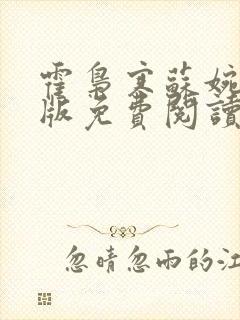 霍梟寒蘇婉
版免費閱讀
忽晴忽雨的江